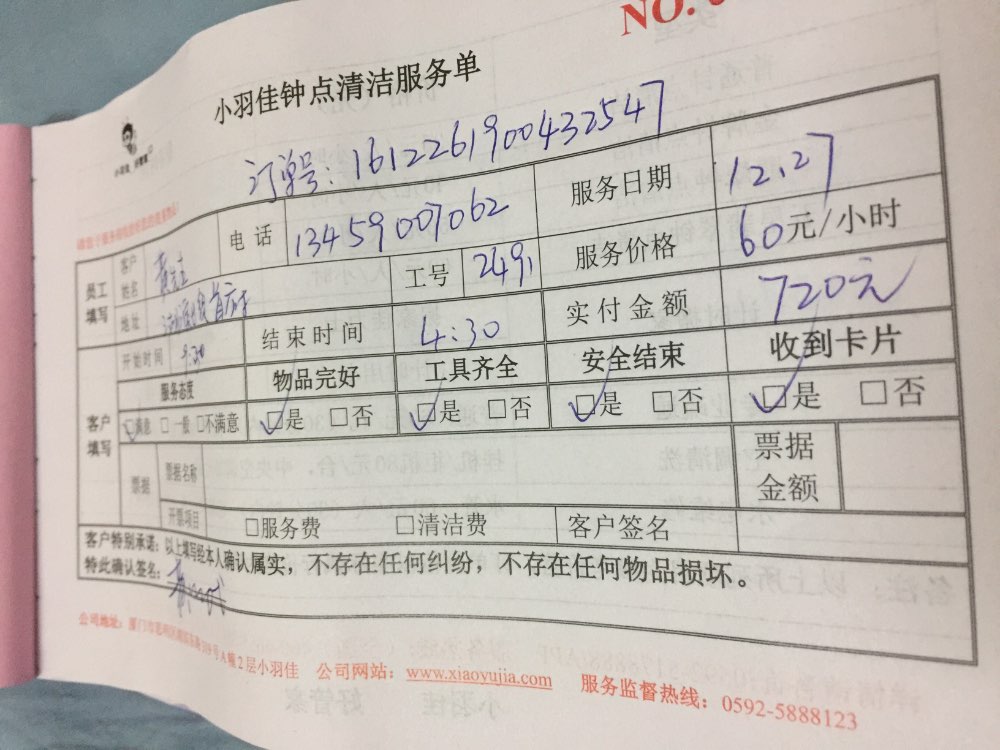 NO.
小羽佳钟点清洁服务单
订单号: 161226190043 2547
员工填写 客户姓名 电话 13459007062 服务日期 12.27
地址 工号 2491 服务价格 60元/小时
开始时间 9:30 结束时间 4:30 实付金额 720元
客户填写 服务态度 物品完好 工具齐全 安全结束 收到卡片
□满意 □一般 □不满意 □是 □否 □是 □否 □是 □否 □是 □否
票据 票据名称 票据金额
开票项目 □服务费 □清洁费 客户签名
客户特别承诺：以上填写经本人确认属实，不存在任何纠纷，不存在任何物品损坏。
特此确认签名：
公司地址：厦门市思明区 319号A幢2层小羽佳 公司网站：www.xiaoyujia.com 服务监督热线：0592-5888123